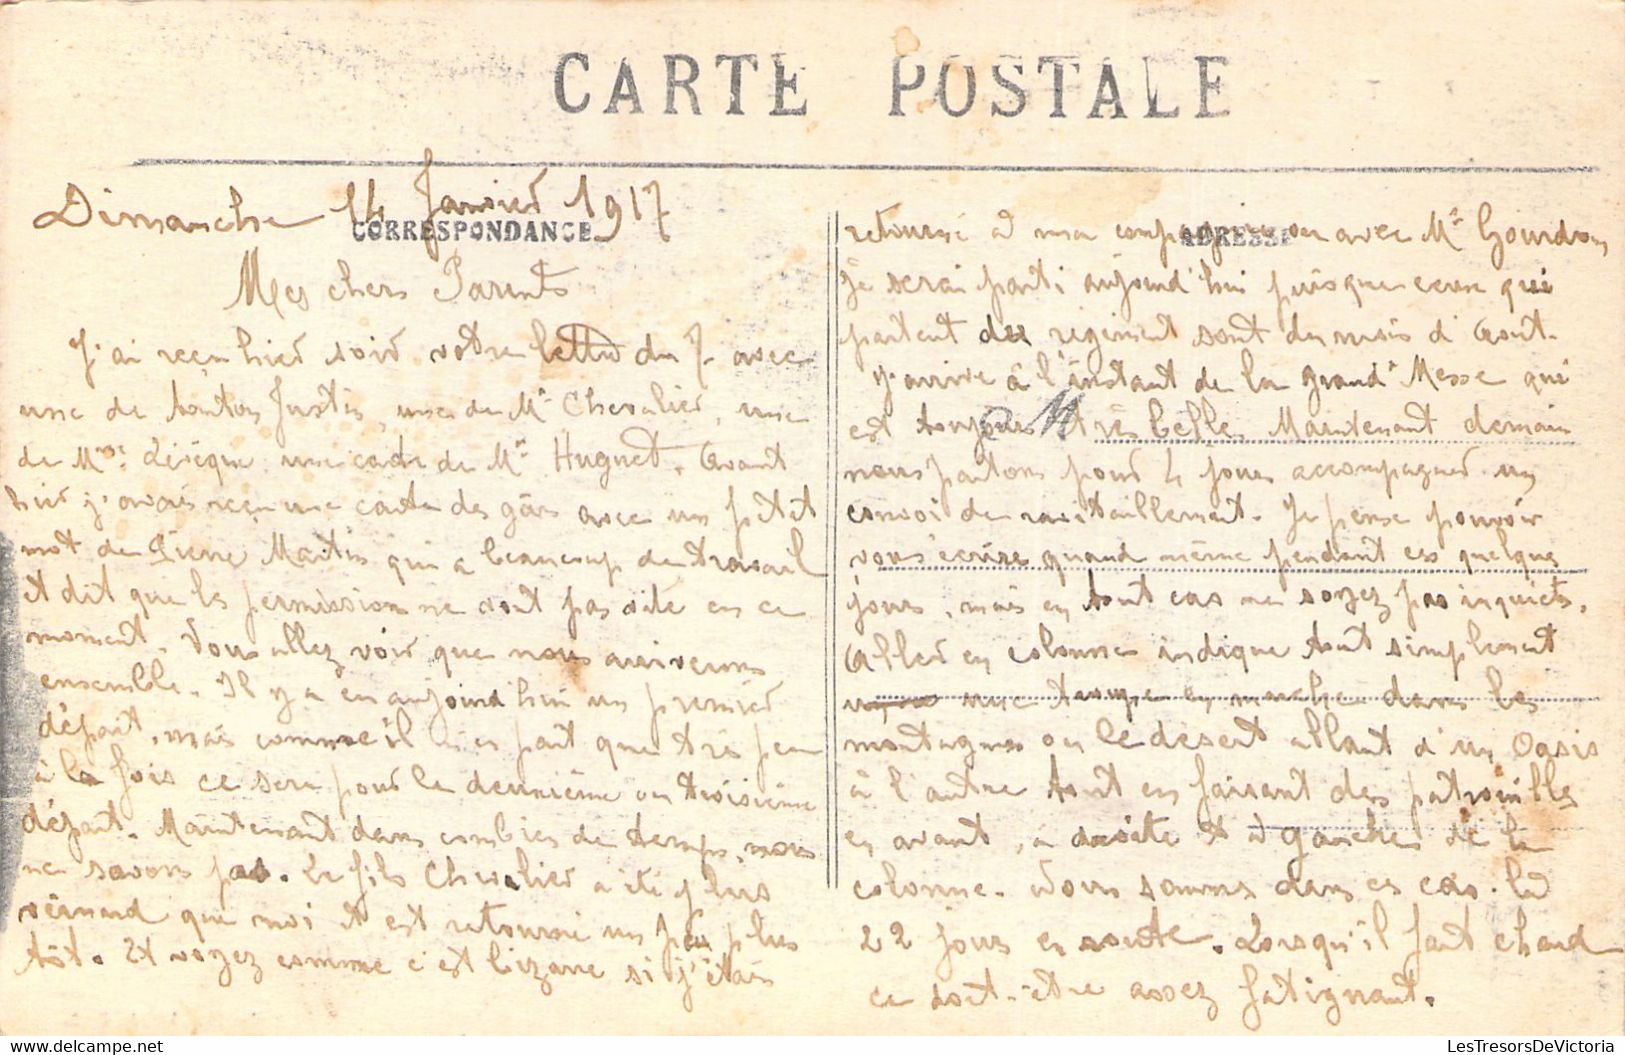 CARTE POSTALE
CORRESPONDANCE
ADRESSE
Dimanche 14 Janvier 1917
Mes chers Parents
J'ai reçu hier soir votre lettre du 7 avec
une de tonton Justin, une de Mr Chevalier, une
de Mme Levêque une carte de Mr Huguet. Avant
hier j'avais reçu une carte des gars avec un petit
mot de Pierre Martin qui a beaucoup de travail
et dit que les permissions ne vont pas vite en ce
moment. Vous allez voir que nous arriverons
ensemble. Il y a eu aujourd'hui un premier
départ, mais comme il n'en part que très peu
à la fois ce sera pour le deuxième ou troisième
départ. Maintenant dans combien de temps, nous
ne savons pas. Le fils Chevalier a été plus
veinard que moi et est retourné un peu plus
tôt. Et voyez comme c'est bizarre si j'étais
retourné à ma compagnie ou avec Mr Gourdon
je serai parti aujourd'hui puisque ceux qui
partent du régiment sont du mois d'Août.
J'arrive à l'instant de la grand' Messe qui
est toujours très belle. Maintenant demain
nous partons pour 4 jours accompagner un
convoi de ravitaillement. Je pense pouvoir
vous écrire quand même pendant ces quelques
jours, mais en tout cas ne soyez pas inquiets.
Aller en colonne indique tout simplement
une troupe en marche dans les
montagnes ou le désert allant d'un Oasis
à l'autre tout en faisant des patrouilles
en avant, à droite et à gauche de la
colonne. Nous sommes dans ce cas. Le
22 jours en route. Lorsqu'il fait chaud
ce doit-être assez fatignant.
LesTresorsDeVictoria